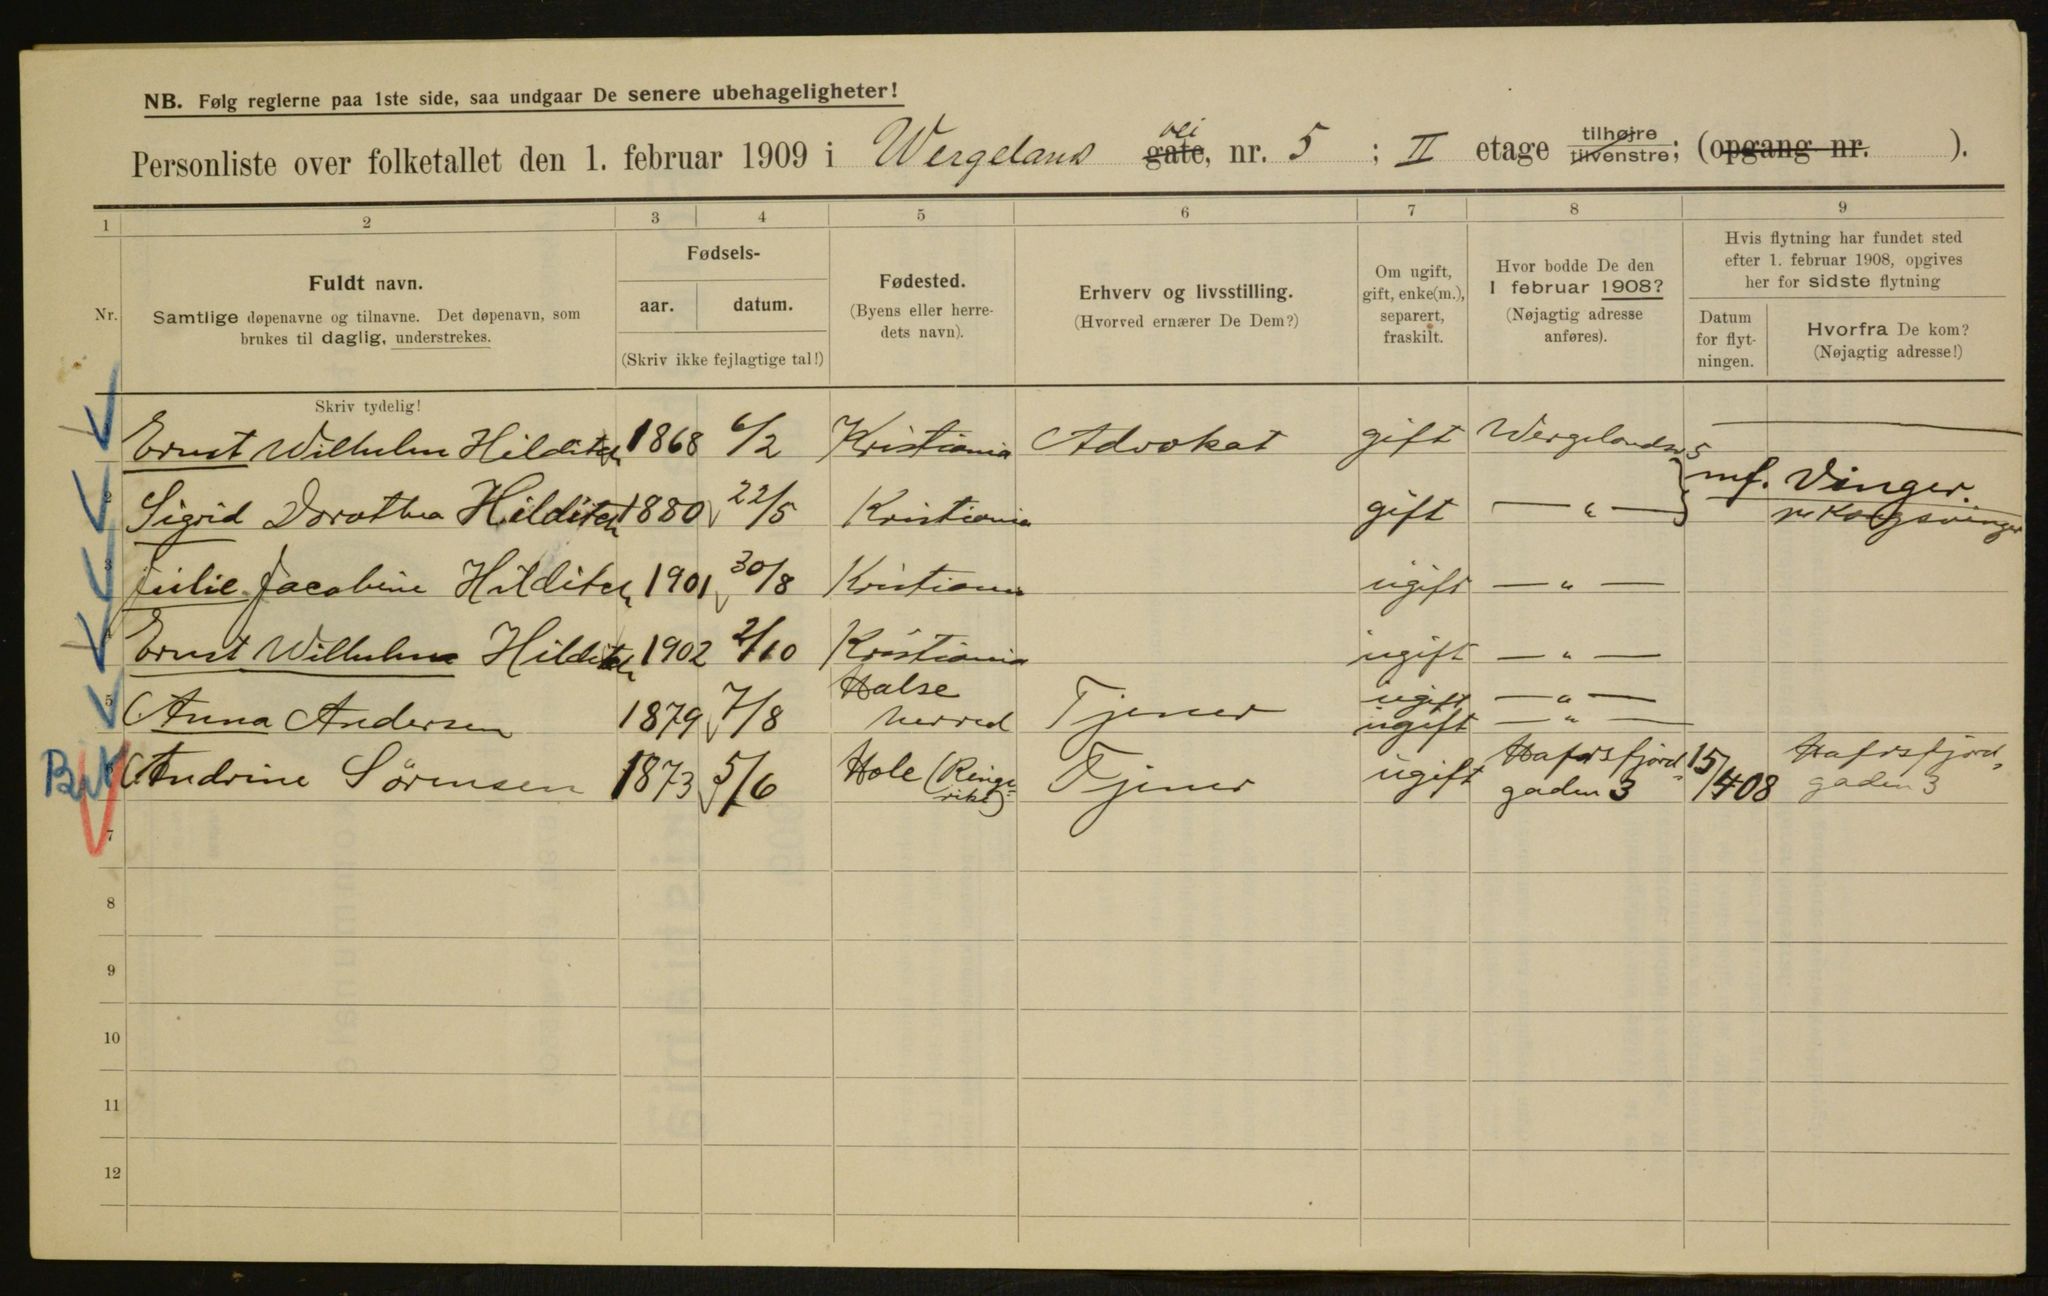 NB. Følg reglerne paa 1ste side, saa undgaar De senere ubehageligheter!
Personliste over folketallet den 1. februar 1909 i Wergelands gate, vei nr. 5 ; II etage tilhøjre tilvenstre; (opgang nr. ).
1 2 3 4 5 6 7 8 9
Nr.
Fuldt navn.
Samtlige døpenavne og tilnavne. Det døpenavn, som
brukes til daglig, understrekes.
Skriv tydelig!
Fødsels-
aar. datum.
(Skriv ikke fejlagtige tal!)
Fødested.
(Byens eller herre-
dets navn).
Erhverv og livsstilling.
(Hvorved ernærer De Dem?)
Om ugift,
gift, enke(m.),
separert,
fraskilt.
Hvor bodde De den
1 februar 1908?
(Nøjagtig adresse
anføres).
Hvis flytning har fundet sted
efter 1. februar 1908, opgives
her for sidste flytning
Datum
for flyt-
ningen.
Hvorfra De kom?
(Nøjagtig adresse!)
Ernst Wilhelm Hilditch 1868 6/2 Kristiania Advokat gift Wergelandsv 5
2 Sigrid Dorothea Hilditch 1880 22/5 Kristiania gift — " — mf. Vinger.
pr Kongsvinger
3 Julie Jacobine Hilditch 1901 30/8 Kristiania ugift — " —
4 Ernst Wilhelm Hilditch 1902 2/10 Kristiania ugift — " —
5 Anna Andersen 1879 7/8 Halse
herred Tjener ugift — " —
ugift — " —
6 Andrine Sørensen 1873 5/6 Hole (Ringe-
rike) Tjener ugift Hafrsfjord-
gaden 3 15/4 08 Hafrsfjord-
gaden 3
7
8
9
10
11
12